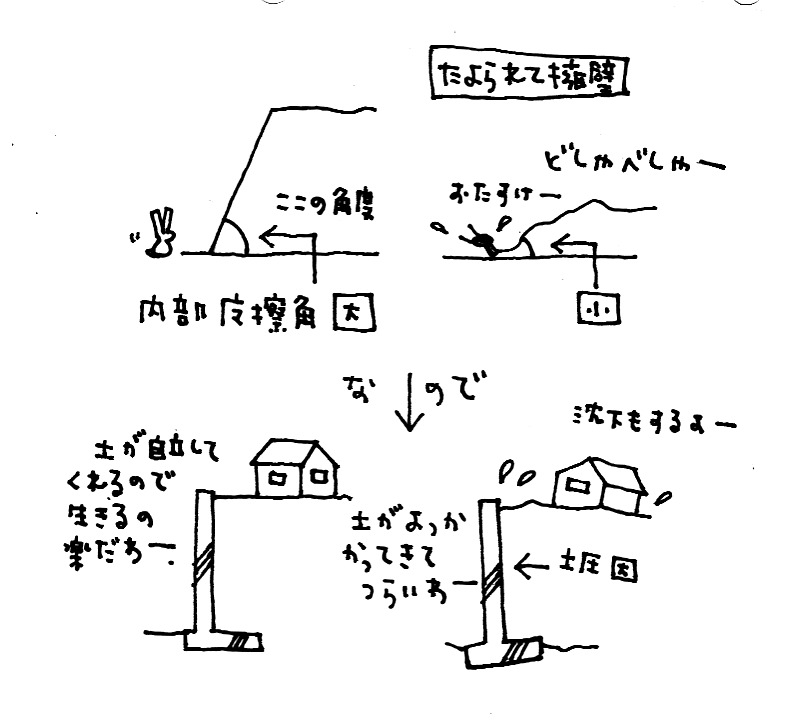 たよられて擁壁
ここの角度
内部摩擦角 大
どしゃべしゃー
おたすけー
小
なので
土が自立して
くれるので
生きるの
楽だわー
沈下もするよー
土がよっか
かってきて
つらいわー
土圧 大